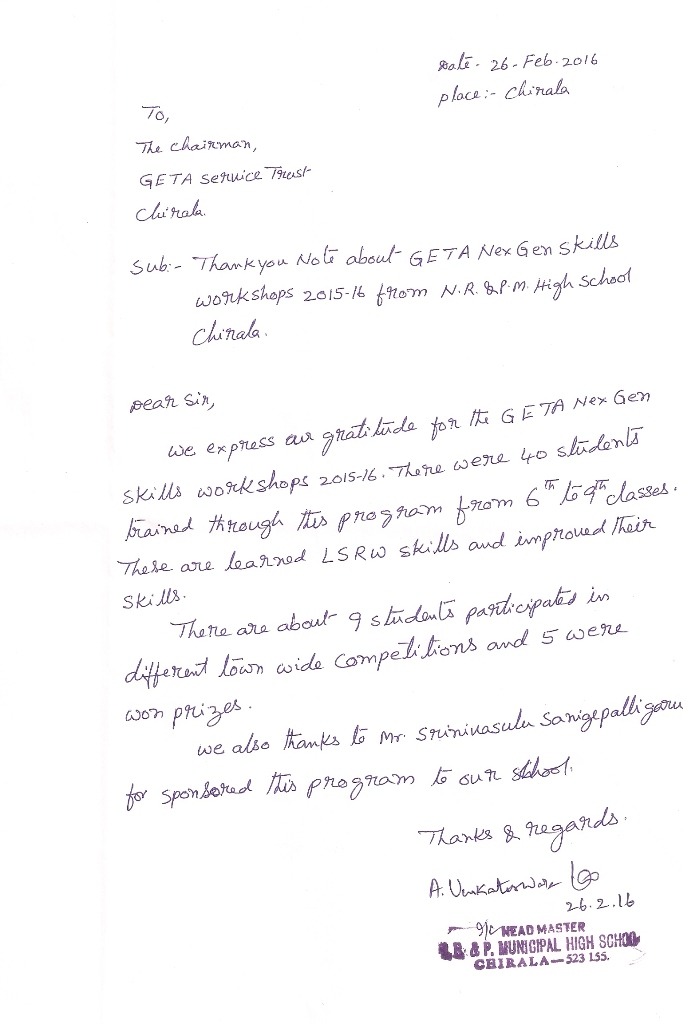 Date - 26 - Feb. 2016
place:- Chirala
To,
The chairman,
GETA Service Trust
Chirala.
Sub:- Thankyou Note about GETA Nex Gen Skills
workshops 2015-16 from N.R. & P.M. High School
Chirala.
Dear Sir,
we express our gratitude for the GETA Nex Gen
Skills workshops 2015-16. There were 40 students
trained through this program from 6th to 9th classes.
These are learned LSRW skills and improved their
Skills.
There are about 9 students participated in
different town wide competitions and 5 were
won prizes.
we also thanks to Mr. Srinivasulu Sanigepalli garu
for sponsored this program to our school.
Thanks & regards.
A. Venkateswara
26.2.16
I/C HEAD MASTER
& P. MUNICIPAL HIGH SCHOOL
CHIRALA—523 155.